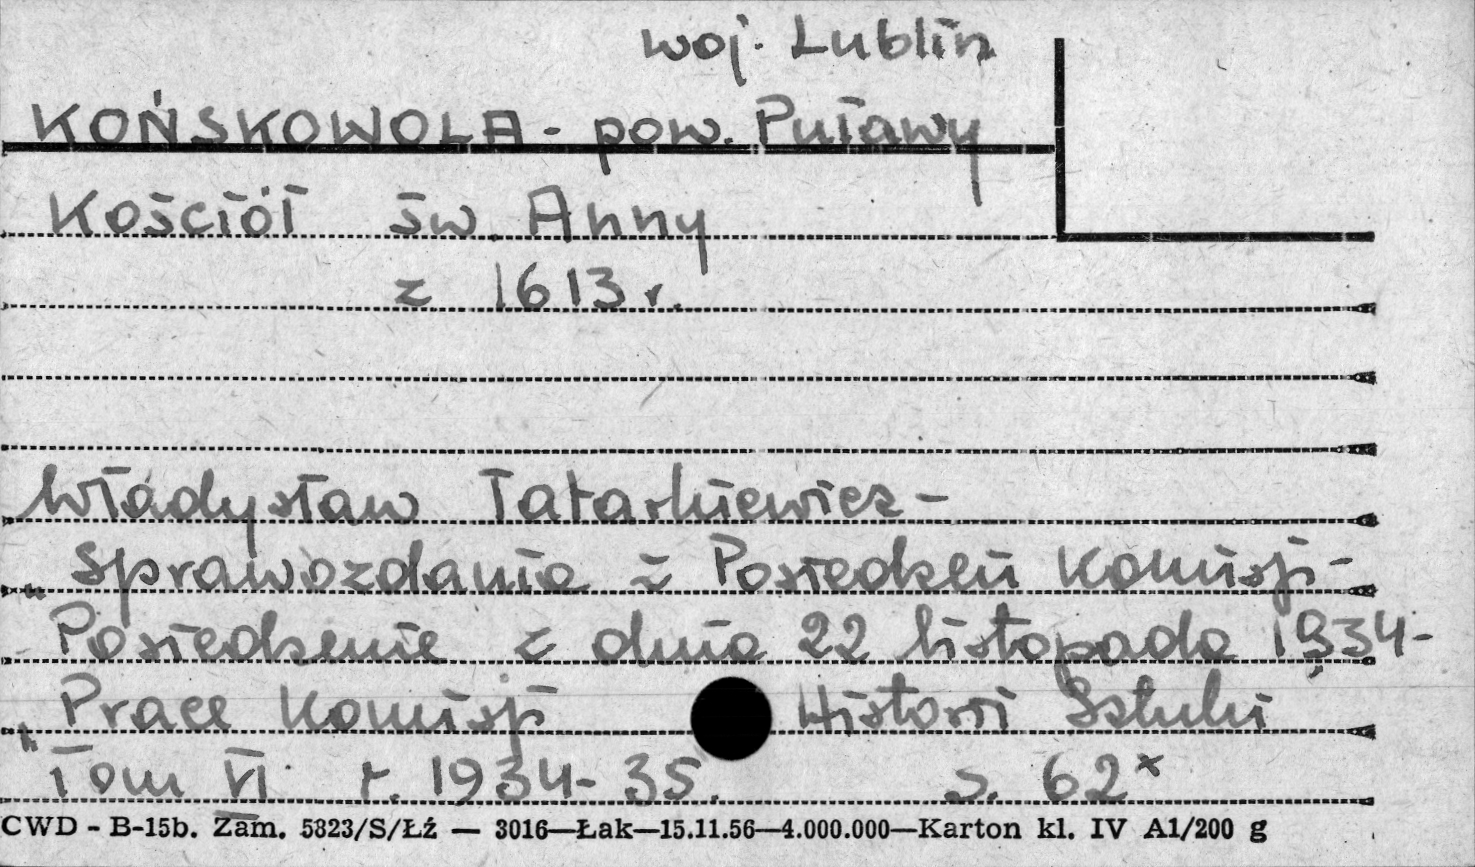 woj. Lublin
KOŃSKOWOLA - pow. Puławy
Kościół św. Anny
z 1613 r.
Władysław Tatarkiewicz -
Sprawozdania z Posiedzeń Komisji -
"Posiedzenie z dnia 22 listopada 1934 -"
Prace Komisji Historii Sztuki
"Tom VI r. 1934-35. s. 62x
CWD - B-15b. Zam. 5823/S/Łź — 3016—Łak—15.11.56—4.000.000—Karton kl. IV A1/200 g